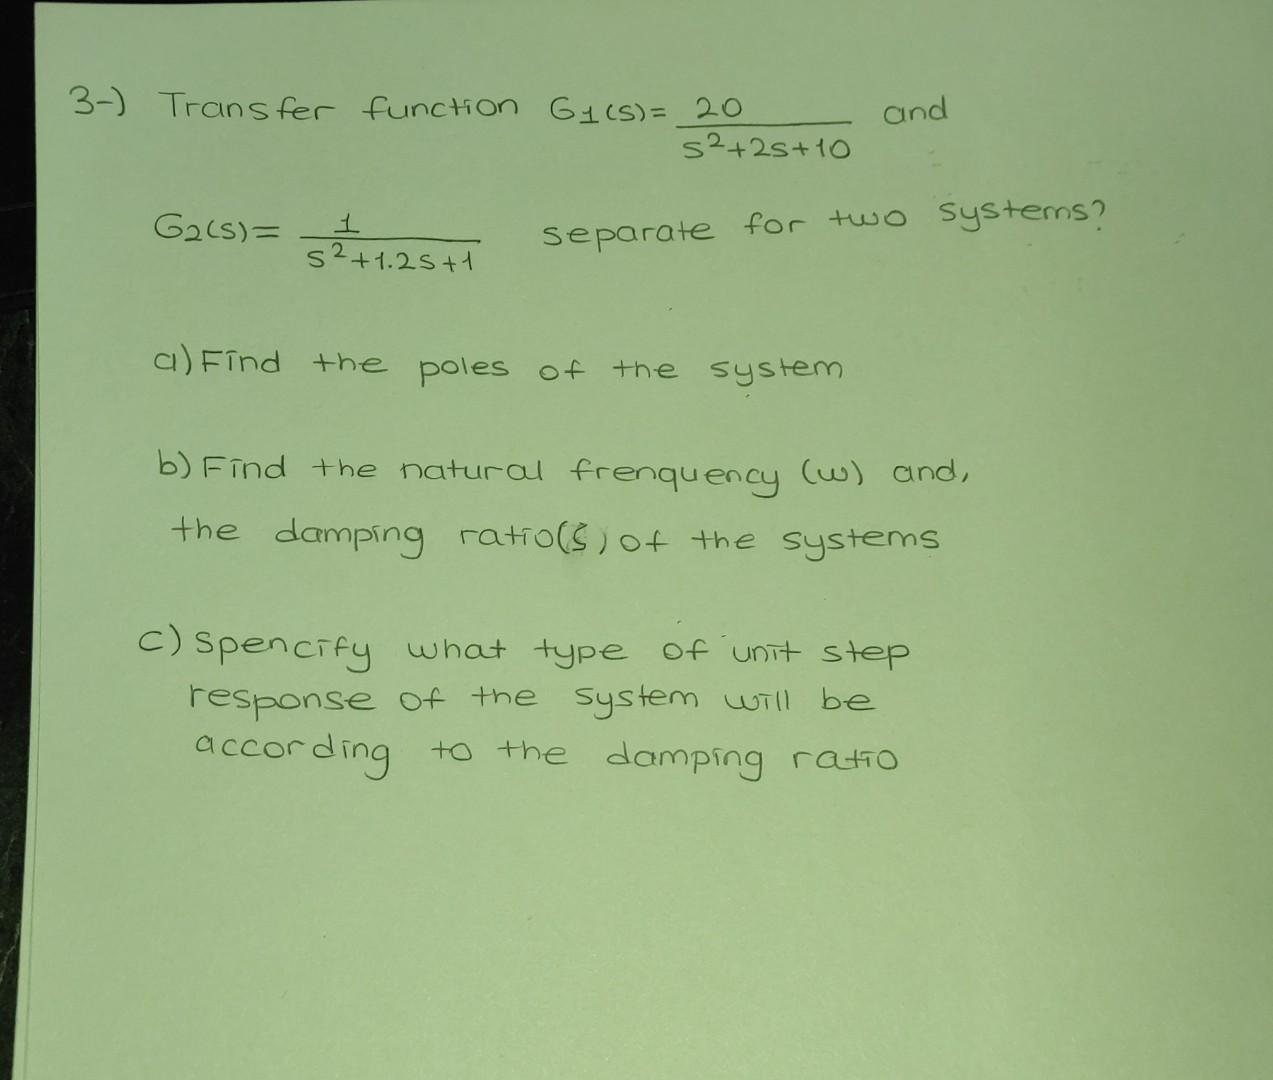 3-) Transfer function G1(s)= 20 and
s²+2s+10
G2(s)= 1 separate for two systems?
s²+1.2s+1
a) Find the poles of the system
b) Find the natural frenquency (w) and,
the damping ratio(ξ) of the systems
c) spencify what type of unit step
response of the system will be
according to the damping ratio